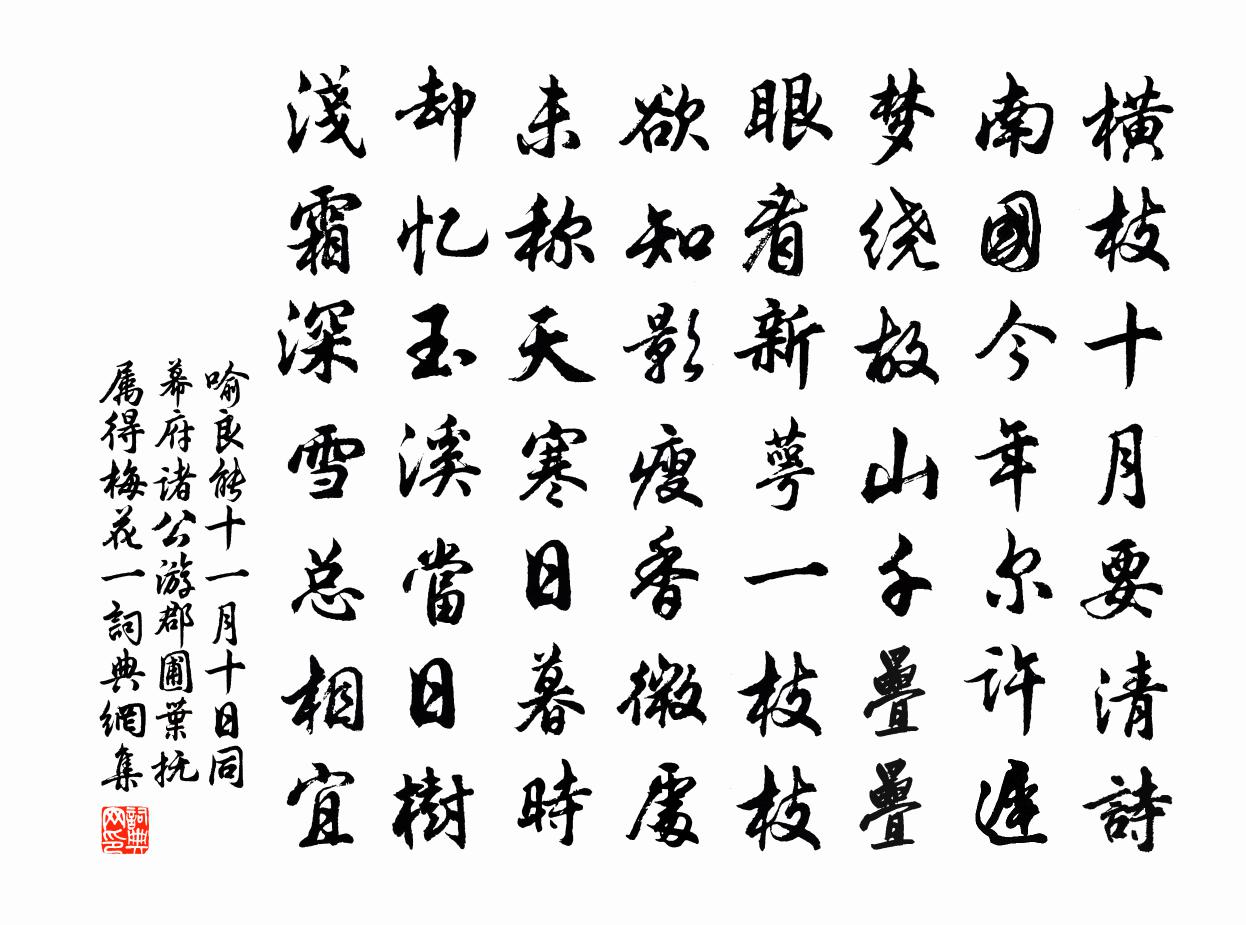 横枝十月要清詩
南國今年尔許遲
梦绕故山千疊疊
眼看新萼一枝枝
欲知影瘦香微處
未称天寒日暮時
却忆玉溪當日樹
淺霜深雪总相宜
喻良能十一月十日同
幕府诸公游郡圃葉抚
属得梅花一詞典網集
詞典网印